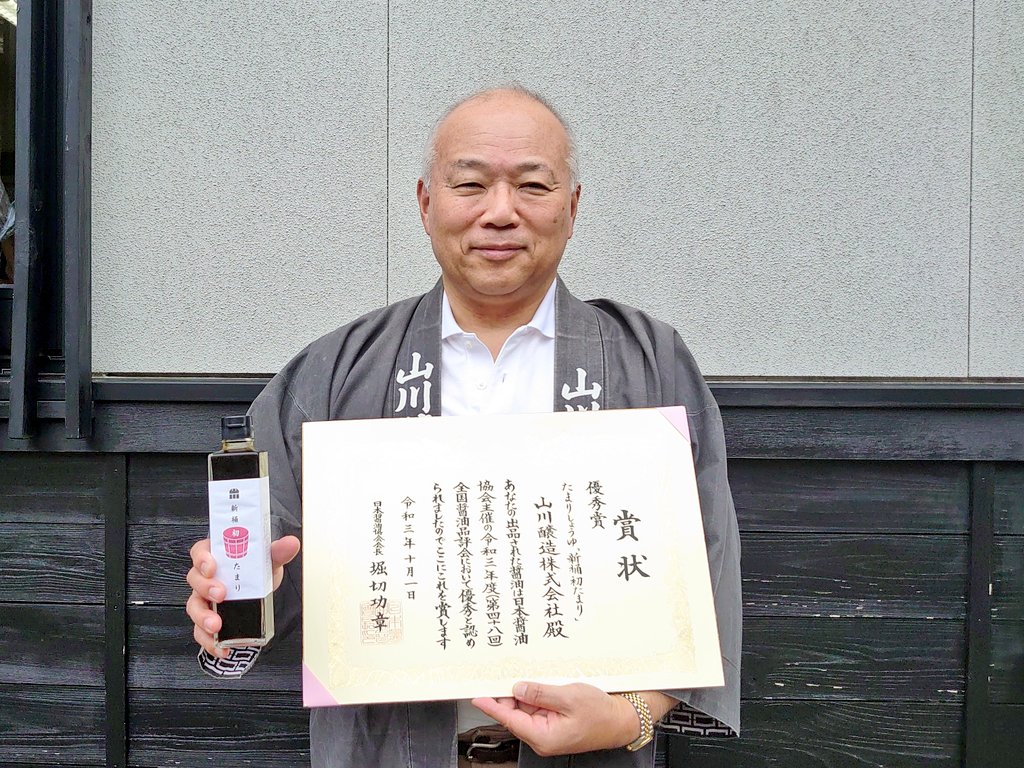 賞状
優秀賞
たまりしょうゆ、新桶初たまり」
山川醸造株式会社殿
あなたの出品された醤油は日本醤油
協会主催の令和三年度(第四十八回)
全国醤油品評会において優秀と認め
られましたのでここにこれを賞します
令和三年十月一日
日本醤油協会会長 堀切功章
山川
山川
新桶
初
たまり